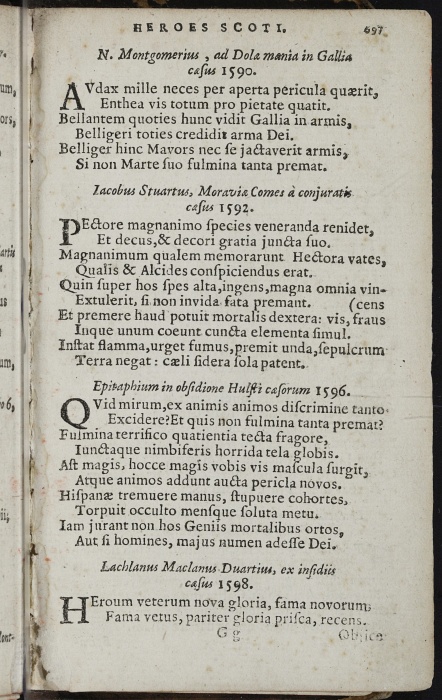 HEROES SCOTI. 697
N. Montgomerius, ad Dolæ mœnia in Gallia
cæsus 1590.
AVdax mille neces per aperta pericula quærit,
Enthea vis totum pro pietate quatit.
Bellantem quoties hunc vidit Gallia in armis,
Belligeri toties credidit arma Dei.
Belliger hinc Mavors nec se jactaverit armis,
Si non Marte suo fulmina tanta premat.
Iacobus Stuartus, Moraviæ Comes à conjuratis
cæsus 1592.
PEctore magnanimo species veneranda renidet,
Et decus, & decori gratia juncta suo.
Magnanimum qualem memorarunt Hectora vates,
Qualis & Alcides conspiciendus erat.
Quin super hos spes alta, ingens, magna omnia vin-
Extulerit, si non invida fata premant. (cens
Et premere haud potuit mortalis dextera: vis, fraus
Inque unum coeunt cuncta elementa simul.
Instat flamma, urget fumus, premit unda, sepulcrum
Terra negat: cæli sidera sola patent.
Epitaphium in obsidione Hulsti cæsorum 1596.
QVid mirum, ex animis animos discrimine tanto
Excidere? Et quis non fulmina tanta premat?
Fulmina terrifico quatientia tecta fragore,
Iunctaque nimbiferis horrida tela globis.
Ast magis, hocce magis vobis vis mascula surgit,
Atque animos addunt aucta pericla novos.
Hispanæ tremuere manus, stupuere cohortes,
Torpuit occulto mensque soluta metu.
Iam jurant non hos Geniis mortalibus ortos,
Aut si homines, majus numen adesse Dei.
Lachlanus Maclanus Duartius, ex insidiis
cæsus 1598.
HEroum veterum nova gloria, fama novorum,
Fama vetus, pariter gloria prisca, recens.
G g Objice